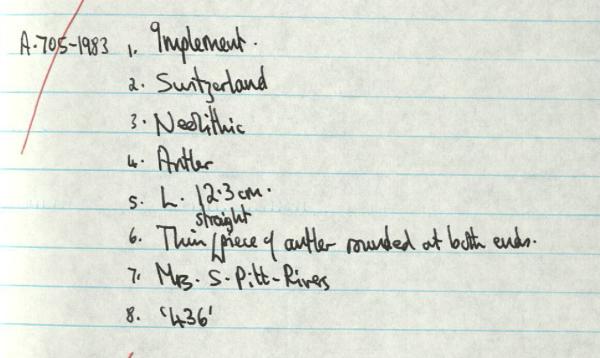 A.705-1983 1. Implement.
2. Switzerland
3. Neolithic
4. Antler
5. L. 12.3 cm.
straight
6. Thin / piece of antler rounded at both ends.
7. Mrs. S. Pitt-Rivers
8. '436'